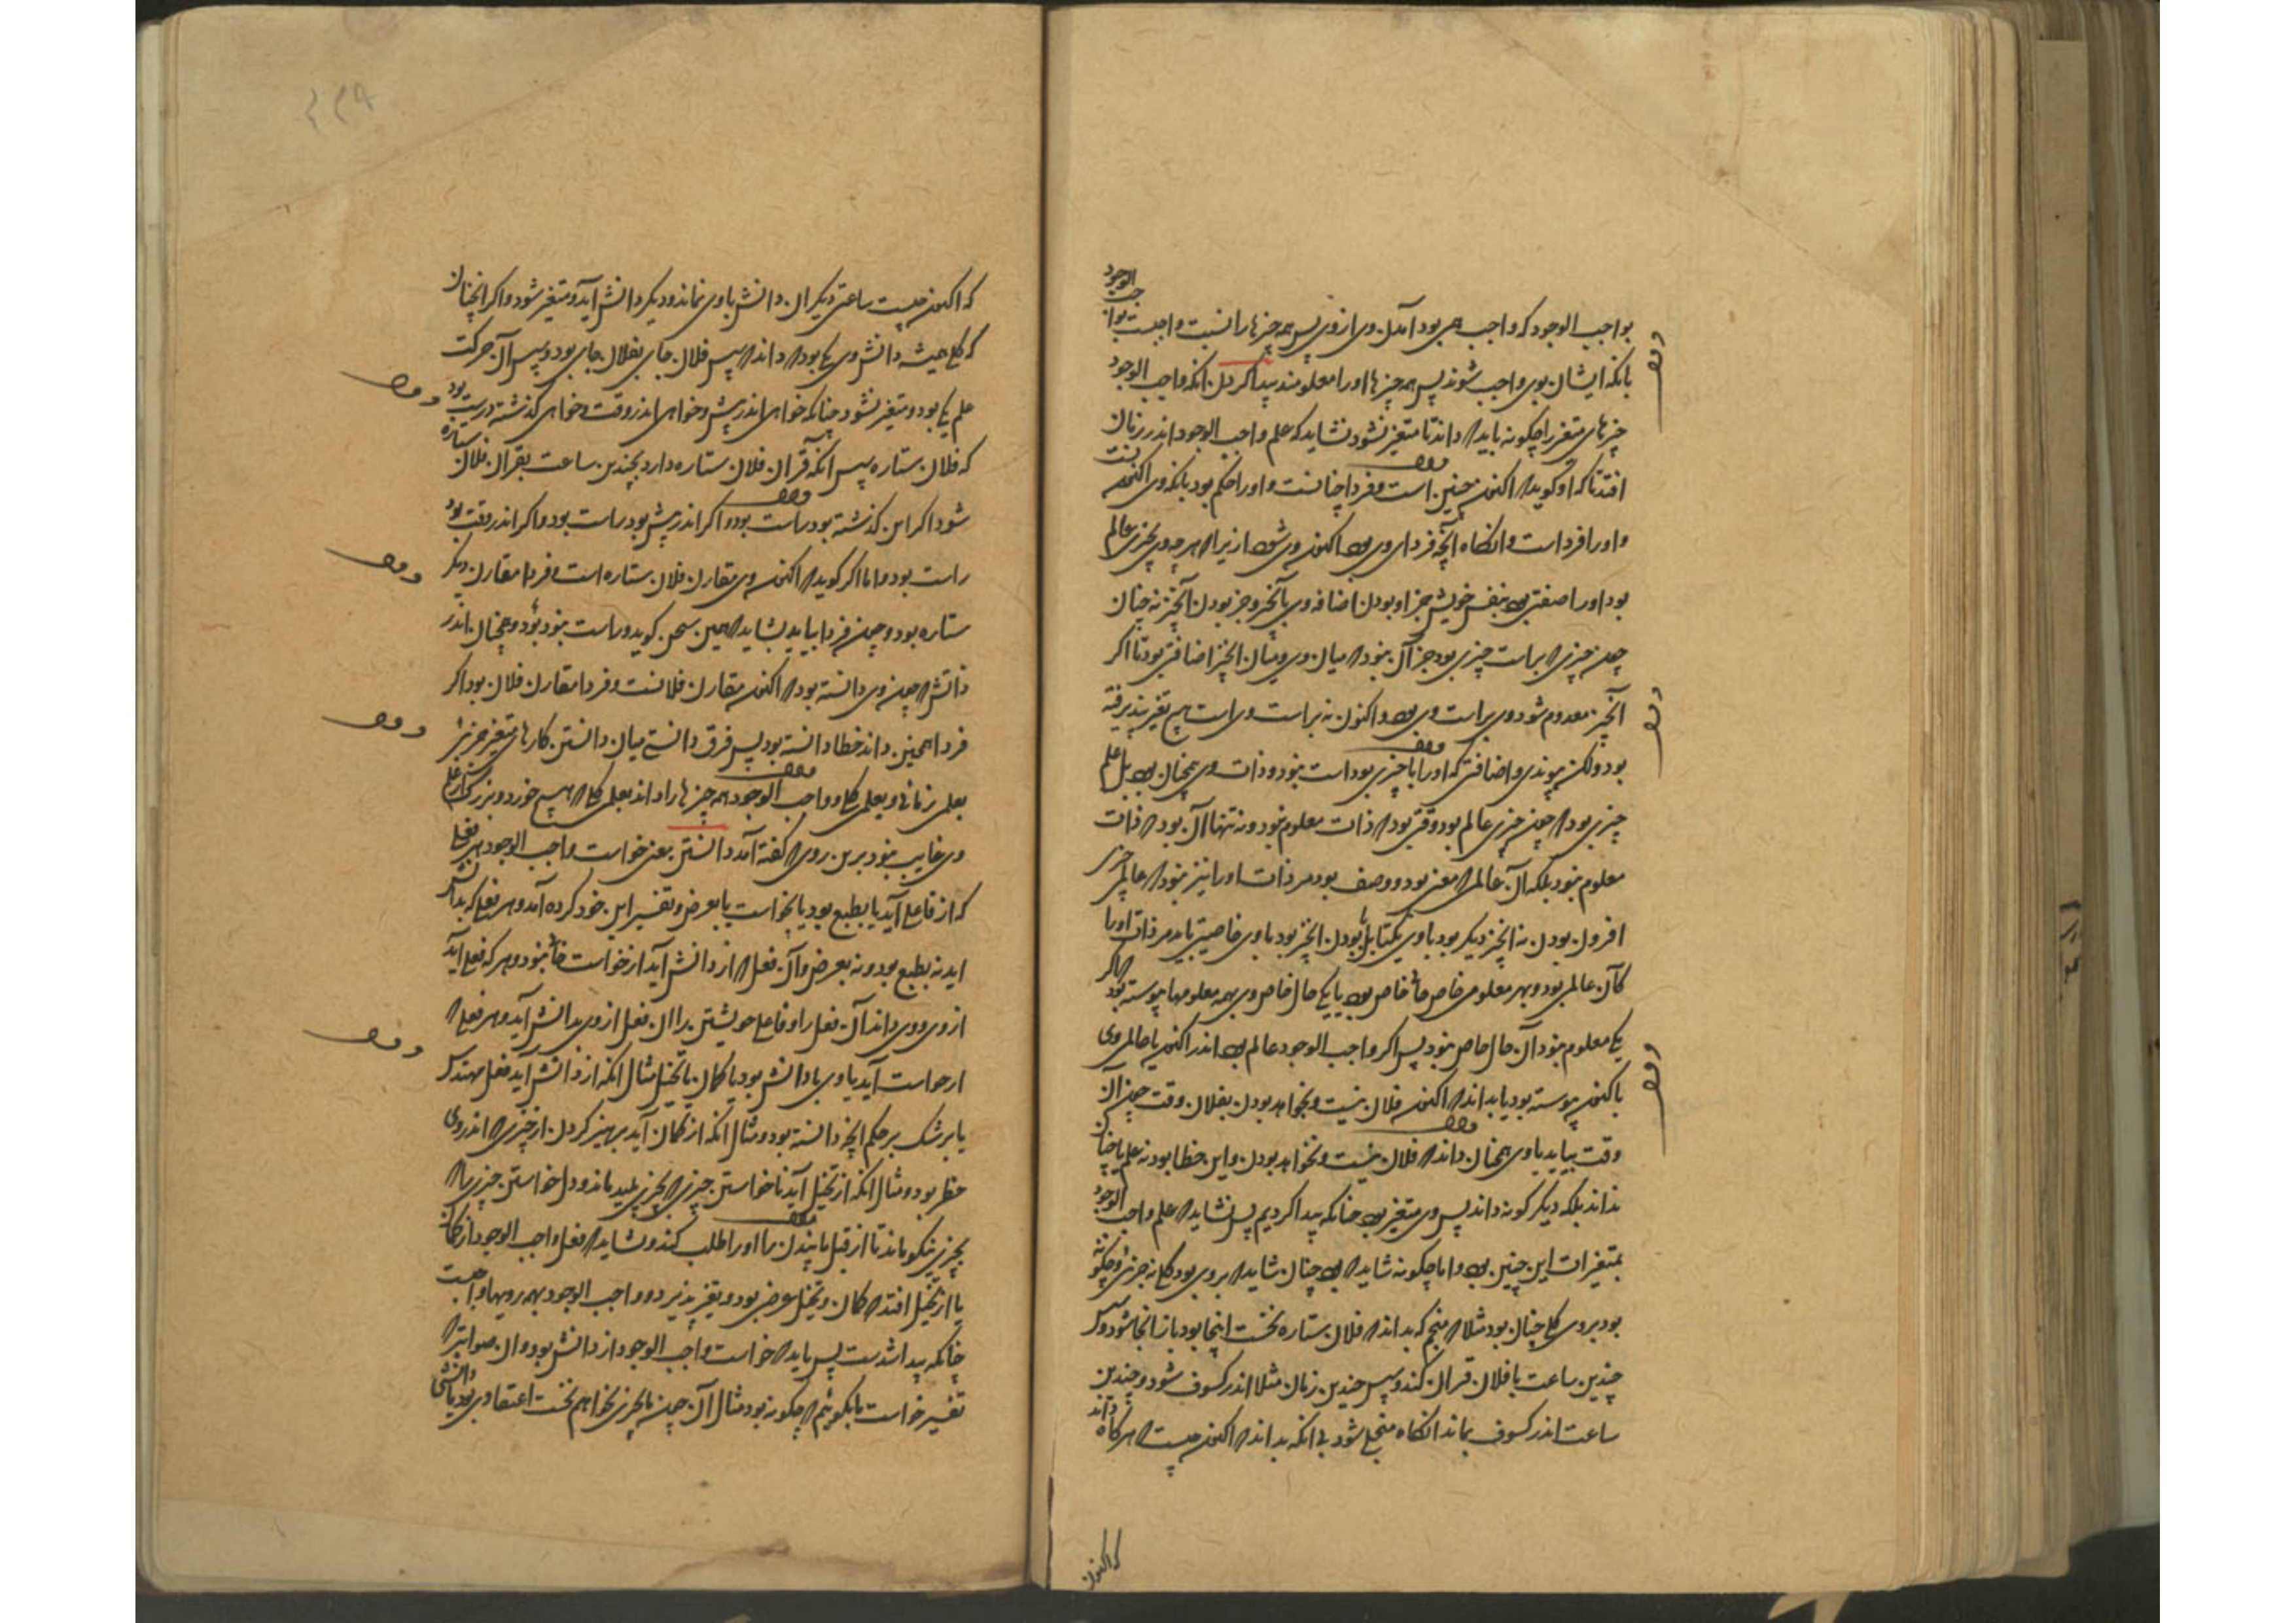 بواجب الوجود که واجب همی بود آمدن وی از وی پس همه چیزها را نسبت واجبیت بواجب الوجود
بانکه ایشان بوی واجب شوند پس همه چیزها اورا معلومند پیدا کردن آنکه واجب الوجود
چیزهای متغیر را چگونه باید که داند تا متغیر نشود نشاید که علم واجب الوجود اندر زمان
افتد تا که او گوید که اکنون چنین است و فردا چنانست و اورا حکم بود بانکه وی اکنونست
و اورا فرداست و آنگاه آنچه فردای وی بود اکنون وی شود ازیرا که هر چه وی بچیزی عالم
بود اورا صفتی بود بنفس خویش جز او بودن اضافه وی بآنچیز و جز بودن آنچیز نه چنان
چون چیزی که براست چیزی بود جز آن نبود که میان وی و میان آنچیز اضافتی بود تا اگر
آنچیز معدوم شود وی براست وی بود و اکنون نه براست وی است هیچ تغیر نپذیرفته
بود ولکن پیوندی و اضافتی که اورا با چیزی بود است نبود و ذات وی همچنان بود بل علم
چیزی بود که چون چیزی عالم بود وقتی بود که ذات معلوم نبود و نه تنها آن بود که ذات
معلوم نبود بلکه آن عالمی که معنی بود و وصف بود مر ذات اورا نیز نبود که عالمی چیزی
افزون بودن نه آنچیز دیگر بود با وی یکتا بل بودن آنچیز بود با وی خاصیتی باید مر ذات اورا
کآن عالمی بود و بهر معلومی خاص حالی خاص بود یا یکی حال خاص وی بهمه معلومها پیوسته بود که اگر
یکی معلوم نبود آن حال خاص نبود پس اگر واجب الوجود عالم بود اندر اکنون یا عالمی وی
باکنون پیوسته بود یا بداند که اکنون فلان نیست و بخواهد بودن بفلان وقت چون آن
وقت بیاید یا وی همچنان داند که فلان نیست و بخواهد بودن و این خطا بود نه علم یا چنان
نداند بلکه دیگر گونه داند پس وی متغیر بود چنانکه پیدا کردیم پس نشاید که علم واجب الوجود
بمتغیرات این چنین بود و اما چگونه شاید که بود چنان شاید که بروی بود کلی نه جزئی و چگونه
بود بروی کلی چنان بود مثلا که منجم که بداند که فلان ستاره نخست اینجا بود باز آنجا شود و سپس
چندین ساعت با فلان قران کند و سپس چندین زمان مثلا اندر کسوف شود و چندین
ساعت اندر کسوف بماند آنگاه منجلی شود بی آنکه بداند که اکنون چیست که هرگاه داند
که اکنون
که اکنون چیست ساعتی دیگر آن دانش با وی نماند و دیگر دانش آید و متغیر شود و اگر آنچنان
که کلی همیشه دانش وی یکی بود که داند که سپس فلان جای بفلان جای بود و سپس آن حرکت
علم یکی بود و متغیر نشود چنانکه خواهی اندر پیش و خواهی اندر وقت و خواهی گذشته درست بود
که فلان ستاره سپس آنکه قران فلان ستاره دارد بچندین ساعت بقران فلان ستاره
شود اگر این گذشته بود راست بود و اگر اندر پیش بود راست بود و اگر اندر وقت بود
راست بود و اما اگر گوید که اکنون وی مقارن فلان ستاره است و فردا مقارن دیگر
ستاره بود و چون فردا بیاید نشاید که همین سخن گوید و راست بود و همچنان اندر
دانش که چون وی دانسته بود که اکنون مقارن فلانست و فردا مقارن فلان بود اگر
فردا همین داند خطا دانسته بود پس فرق دانستی میان دانستن کارهای متغیر جزئی
بعلمی زمانی و بعلمی کلی و واجب الوجود همه چیزها را داند بعلمی کلی که هیچ خورد و بزرگ از علم
وی غایب نبود برین روی که گفته آمد دانستن معنی خواست واجب الوجود هر فعل
که از فاعل آید یا بطبع بود یا بخواست یا بعرض و تفسیر این خود کرده آمد و هر فعلی که بدانش
آید نه بطبع بود و نه بعرض و آن فعل که از دانش آید از خواست خالی نبود و هر که فعل آید
از وی و وی داند آن فعل را و فاعلی خویشتن را آن فعل از وی بدانش آید و هر فعلی که
از خواست آید یا وی با دانش بود یا گمان یا تخیل مثال آنکه از دانش آید فعل مهندس
یا پزشک بر حکم آنچه دانسته بود و مثال آنکه از گمان آید پرهیز کردن از چیزی که اندر وی
خطر بود و مثال آنکه از تخیل آید ناخواستن چیزی که بچیزی پلید ماند و دل خواستن چیزی را که
بچیزی نیکو ماند تا از قبل مانیدن را اورا طلب کند و نشاید که فعل واجب الوجود از گمان
یا از تخیل افتد که گمان و تخیل عرضی بود و تغیر پذیرد و واجب الوجود بهمه رویها واجبست
چنانکه پیدا شدست پس باید که خواست واجب الوجود از دانش بود و آن صوابتر که
تفسیر خواست ما بگوئیم که چگونه بود مثال آن چون ما چیزی بخواهیم نخست اعتقادی بود یا دانشی